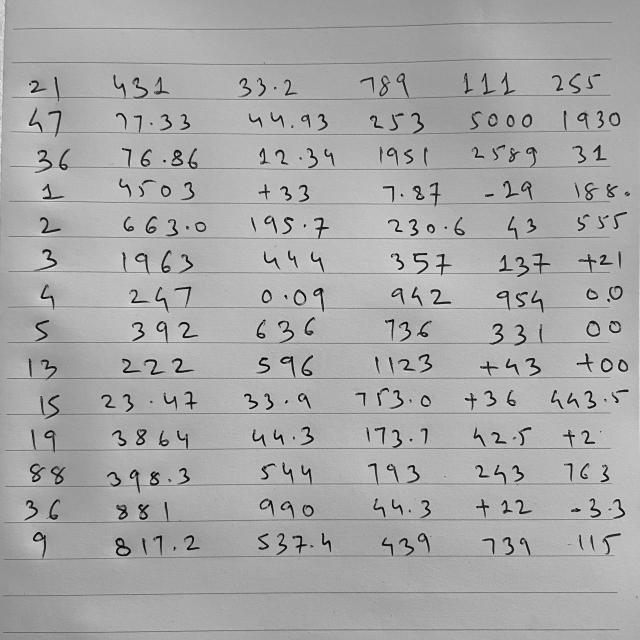 21 431 33.2 789 111 255
47 77.33 44.93 253 5000 1930
36 76.86 12.34 1951 2589 31
1 4503 +33 7.87 -29 188.
2 663.0 195.7 230.6 43 555
3 1963 444 357 137 +21
4 247 0.09 942 954 0.0
5 392 636 736 331 00
13 222 596 1123 +43 +00
15 23.47 33.9 753.0 +36 443.5
19 3864 44.3 173.7 42.5 +2
88 398.3 544 793 243 763
36 881 990 44.3 +22 -3.3
9 817.2 537.4 439 739 -115